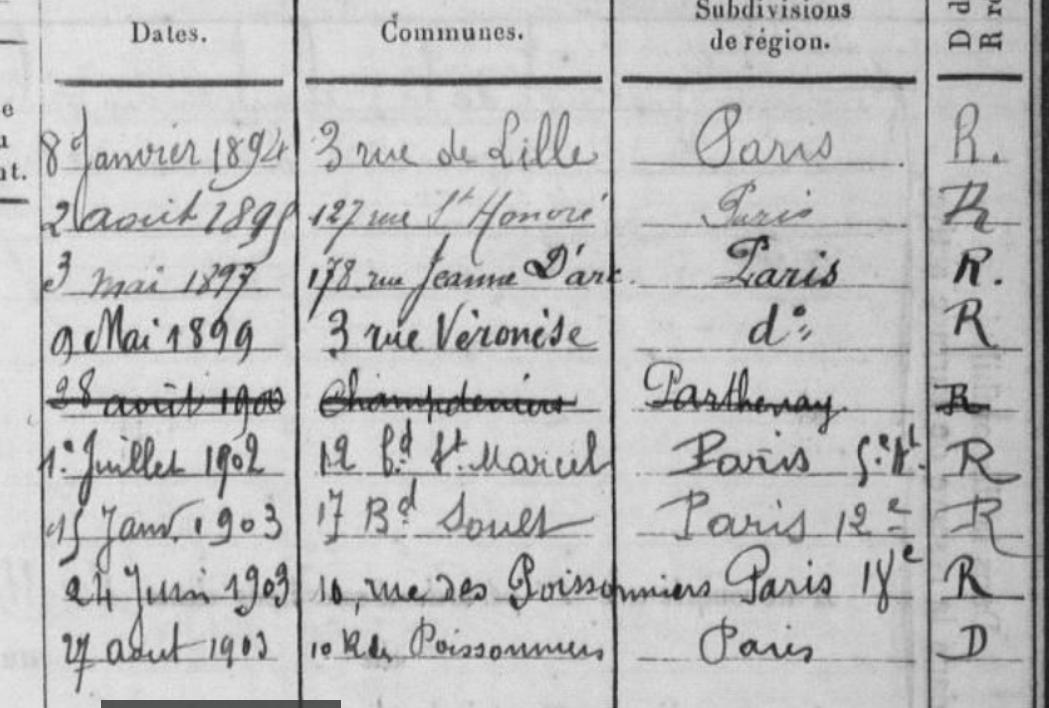 Dates. Communes. Subdivisions de région. D d R re
8 Janvier 1894 3 rue de Lille Paris R.
2 août 1895 127 rue St Honoré Paris R
3 mai 1897 178 rue Jeanne D'arc. Paris R.
9 Mai 1899 3 rue Véronèse d° R
28 août 1900 Champdeniers Parthenay R
1er Juillet 1902 12 Bd St. Marcel Paris 5e R
15 Janv. 1903 17 Bd Soult Paris 12e R
24 Juin 1903 10, rue des Poissonniers Paris 18e R
27 aout 1903 10 R des Poissonniers Paris D